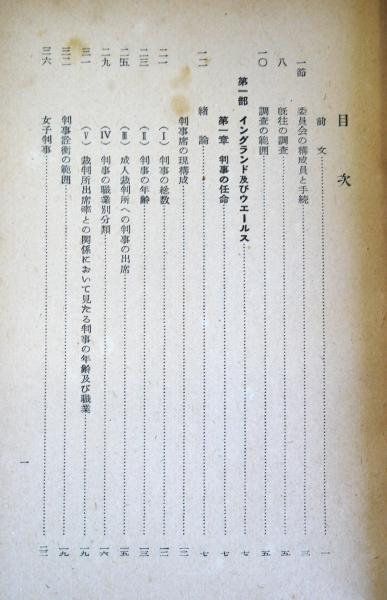 目次
前文……………一
一節 委員会の構成員と手続……………三
八 既往の調査……………五
一〇 調査の範囲……………五
第一部 イングランド及びウエールス……………七
第一章 判事の任命……………七
一二 緒論……………七
判事席の現構成……………一二
二一 （Ⅰ） 判事の総数……………一二
二三 （Ⅱ） 判事の年齢……………一三
二五 （Ⅲ） 成人裁判所への判事の出席……………一五
二九 （Ⅳ） 判事の職業別分類……………一六
三一 （Ⅴ） 裁判所出席率との関係において見たる判事の年齢及び職業……………一九
三二 判事詮衡の範囲……………一九
三六 女子判事……………二二
一